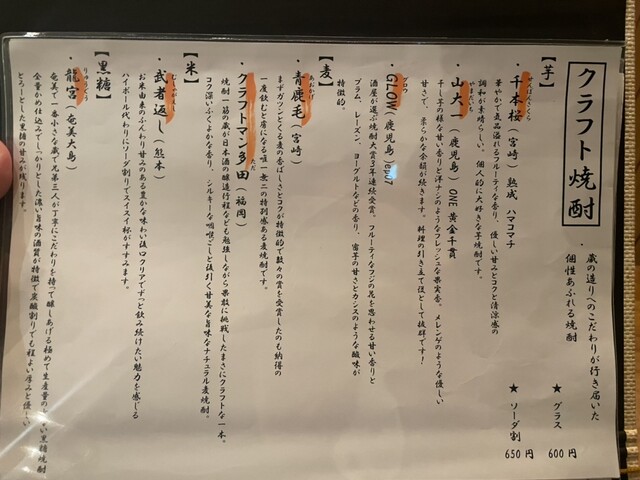 クラフト焼酎
・蔵の造りへのこだわりが行き届いた
個性あふれる焼酎
★グラス 600円
★ソーダ割 650円
【芋】
・千本桜（宮崎） 熟成 ハマコマチ
華やかで気品溢れるフルーティな香り、優しい甘みとコクと清涼感の
調和が素晴らしい。個人的に大好きな芋焼酎です。
・山大一（鹿児島）ONE 黄金千貫
干し芋の様な甘い香りと洋ナシのようなフレッシュな果実香。メレンゲのような優しい
甘さで、柔らかな余韻が続きます。料理の引き立て役として抜群です！
・GLOW（鹿児島）ep07
酒屋が選ぶ焼酎大賞3年連続受賞。フルーティなフジの花を思わせる甘い香りと
プラム、レーズン、ヨーグルトなどの香り、蜜芋の甘さとカシスのような酸味が
特徴的。
【麦】
・青鹿毛（宮崎）
まずガツンとくる麦の香ばしさとコクが特徴的で数々の賞を受賞したのも納得の
一度飲むと虜になる唯一無二の特別感ある麦焼酎です。
・クラフトマン多田（福岡）
焼酎一筋の蔵が日本酒の醸造行程なども勉強しながら果敢に挑戦したまさにクラフトな一本。
コク深いふくよかな香り、シルキーな咽喉ごしと後引く甘美な旨味なナチュラル麦焼酎。
【米】
・武者返し（熊本）
お米由来のふんわり甘みのある豊かな味わい後口クリアでずっと飲み続けたい魅力を感じる
ハイボール代わりにソーダ割りでスイスイ杯がすすみます。
【黒糖】
・龍宮（奄美大島）
奄美で一番小さな蔵で兄弟三人が丁寧にこだわりを持って醸しあげる極めて生産量の少ない黒糖焼酎
全量かめ仕込みでしっかりとした濃い旨味の酒質が特徴で炭酸割りでも程よい厚みと優しい
とろーとした黒糖の甘みが残ります。